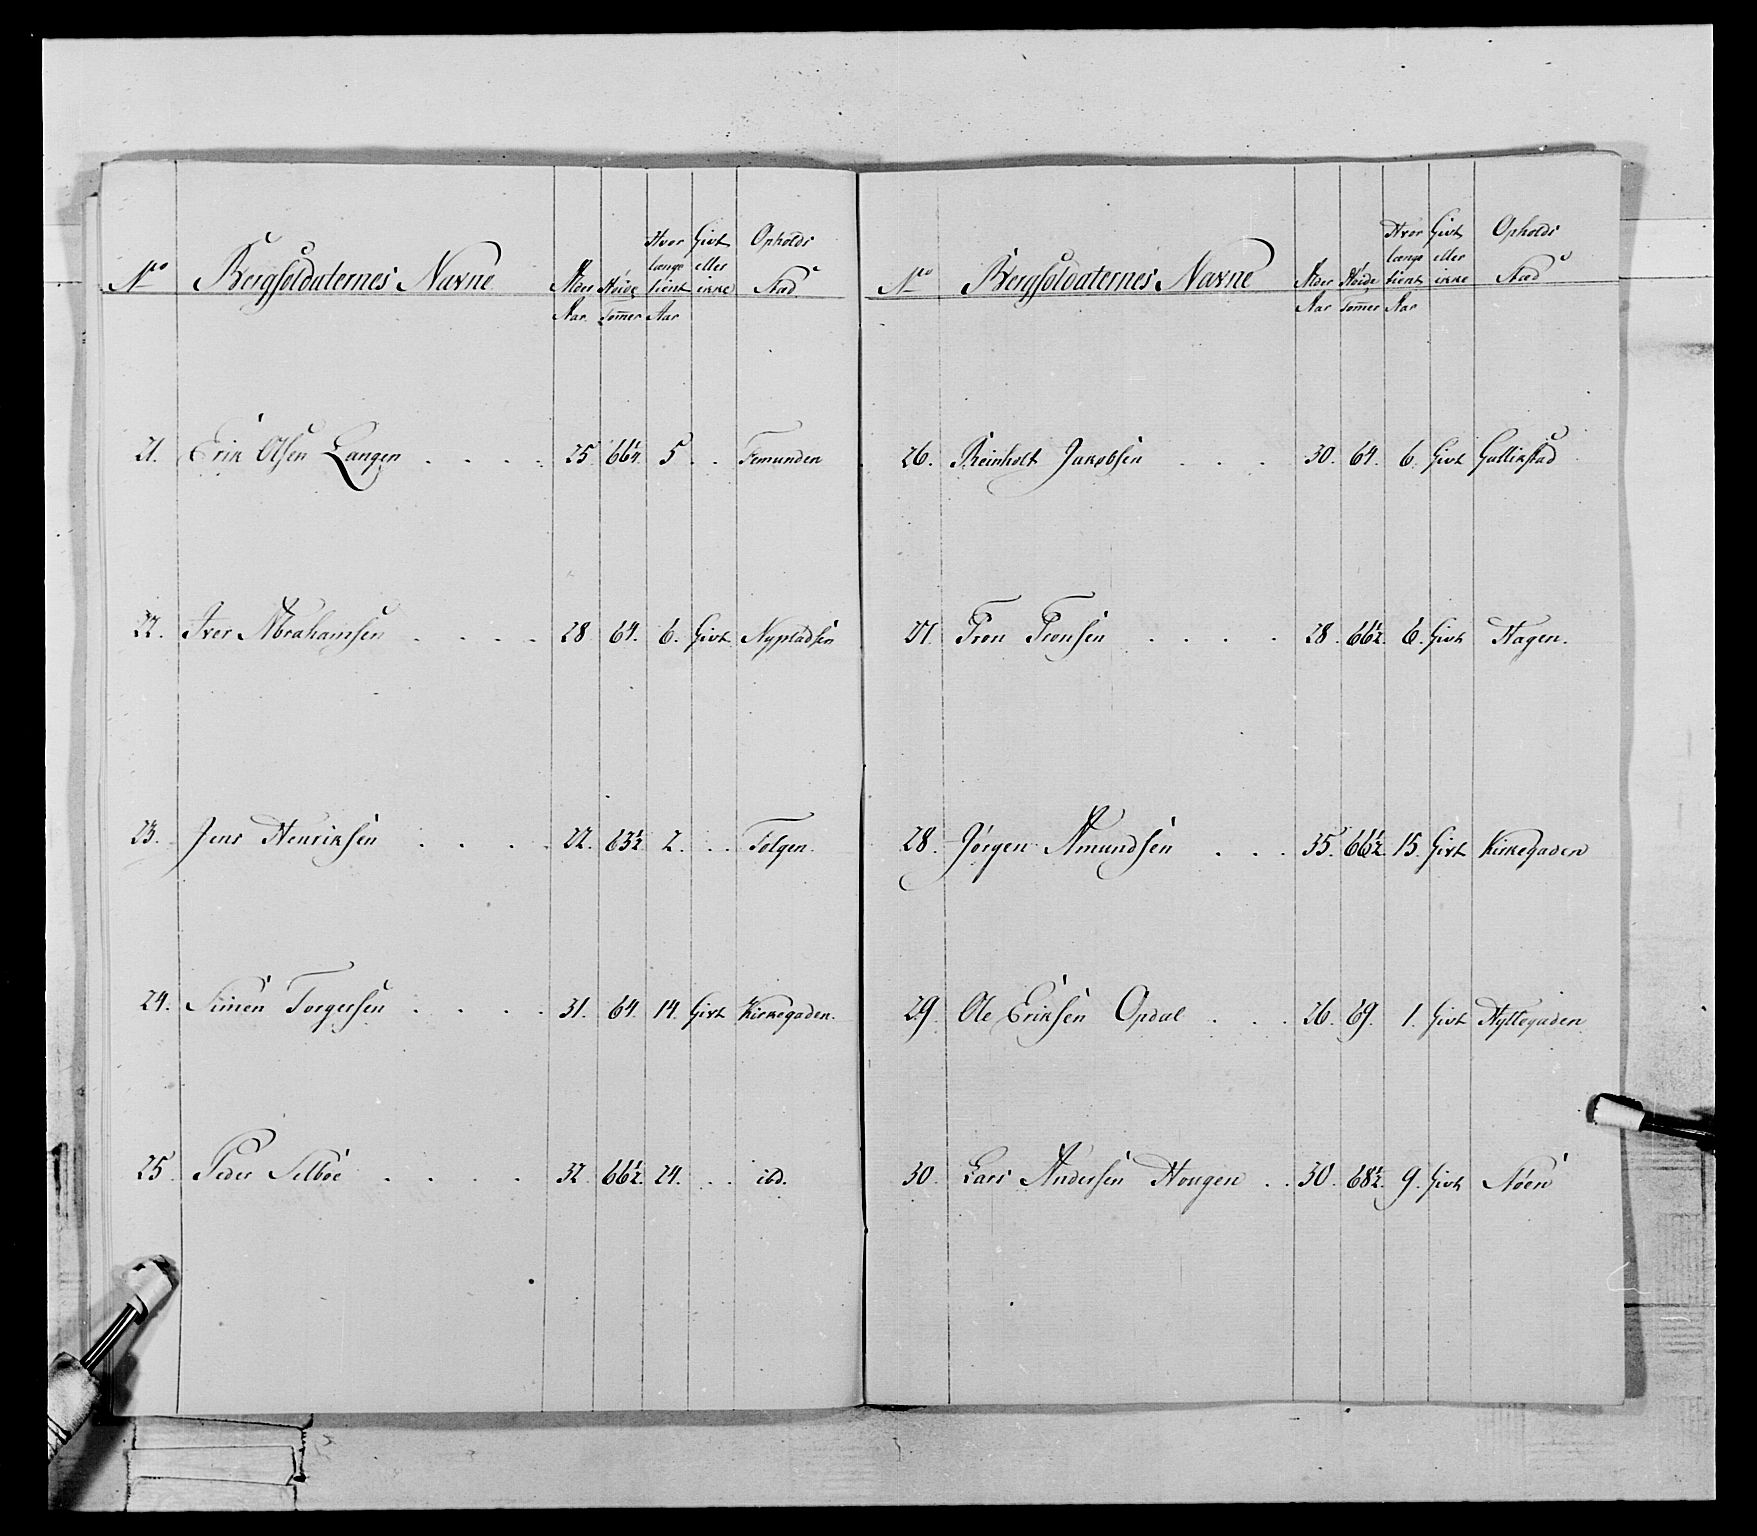 No Bergsoldaternes Navne Alder Aar Høide Tom̄er Hvor længe tient Aar Givt eller ikke Opholds Stad
21. Erik Olsen Langen . . . . 25. 66½. 5 . . Femunden
22. Iver Abrahamsen . . . . 28 64. 6. Givt Nypladsen
23. Jens Henriksen . . . . 22. 63½ 2. . . Tolgen.
24. Simen Torgersen . . . . 31. 64. 14. Givt Kirkegaden.
25. Peder Selboe . . . . 32. 66½. 24. . . ibd.
No Bergsoldaternes Navne Alder Aar Høide Tom̄er Hvor længe tient Aar Givt eller ikke Opholds Stad
26. Reinholt Jakobsen . . . 30. 64. 6. Givt Gullikstad
27. Tron Tronsen . . . . 28. 66½. 6. Givt Hagen.
28. Jørgen Amundsen . . . 35. 66½. 15. Givt Kirkegaden
29. Ole Eriksen Opdal . . . 26. 69. 1. Givt Hyttegaden
30. Lars Andersen Hougen . . 30. 68½. 9. Givt Nøen